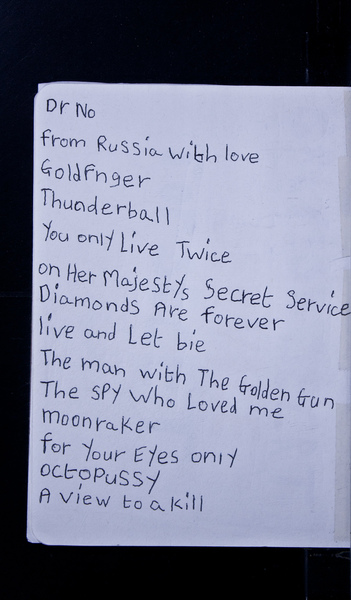 Dr No
from Russia with love
Goldfnger
Thunderball
You only Live Twice
on Her Majestys Secret Service
Diamonds Are forever
live and Let bie
The man with The Golden Gun
The SPY Who Loved me
moonraker
for Your Eyes only
octoPuSSY
A view to a kill